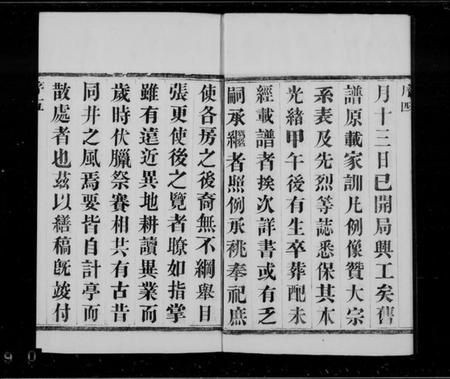 序四
月十三日已開局興工矣舊
譜原載家訓凡例像贊大宗
系表及先烈等誌悉保其本
光緒甲午後有生卒葬配未
經載譜者挨次詳書或有乏
嗣承繼者照例承祧奉祀庶
使各房之後裔無不綱舉目
張更使後之覽者瞭如指掌
雖有遠近異地耕讀異業而
歲時伏臘祭賽相共有古昔
同井之風焉要皆自計亭而
散處者也茲以繕稿既竣付
序五
0 9